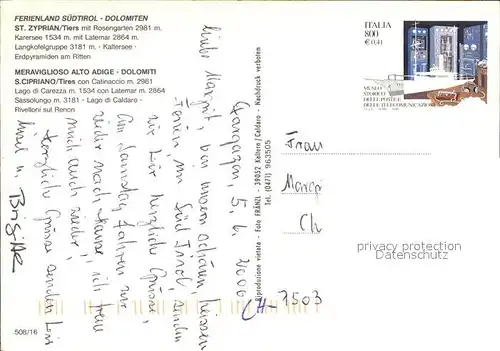 FERIENLAND SÜDTIROL - DOLOMITEN
ST. ZYPRIAN/Tiers mit Rosengarten 2981 m.
Karersee 1534 m mit Latemar 2864 m.
Langkofelgruppe 3181 m. - Kalterersee -
Erdpyramiden am Ritten
MERAVIGLIOSO ALTO ADIGE - DOLOMITI
S.CIPRIANO/Tires con Catinaccio m. 2981
Lago di Carezza m. 1534 con Latemar m. 2864
Sassolungo m. 3181 - Lago di Caldaro -
Rivelloni sul Renon
Gargazon, 5. 6. 2000
Liebe Margrit, bei unsern schönen heissen
Ferien im Süd Tirol, senden
wir Dir herzliche Grüsse,
Am Samstag fahren wir
wieder nach Hause, ich freue
mich auch wieder,
Herzliche Grüsse senden Dir
u. Brigitte
Riproduzione vietata - Foto FRÄNZL - 39052 Kaltern / Caldaro - Nachdruck verboten
Tel. (0471) 963505
ITALIA
800
€ 0,41
MUSEO
STORICO
DELLE POSTE E
DELLE TELECOMUNICAZIONI
Frau
Margr
Ch
CH-7503
privacy protection
Datenschutz
508/16